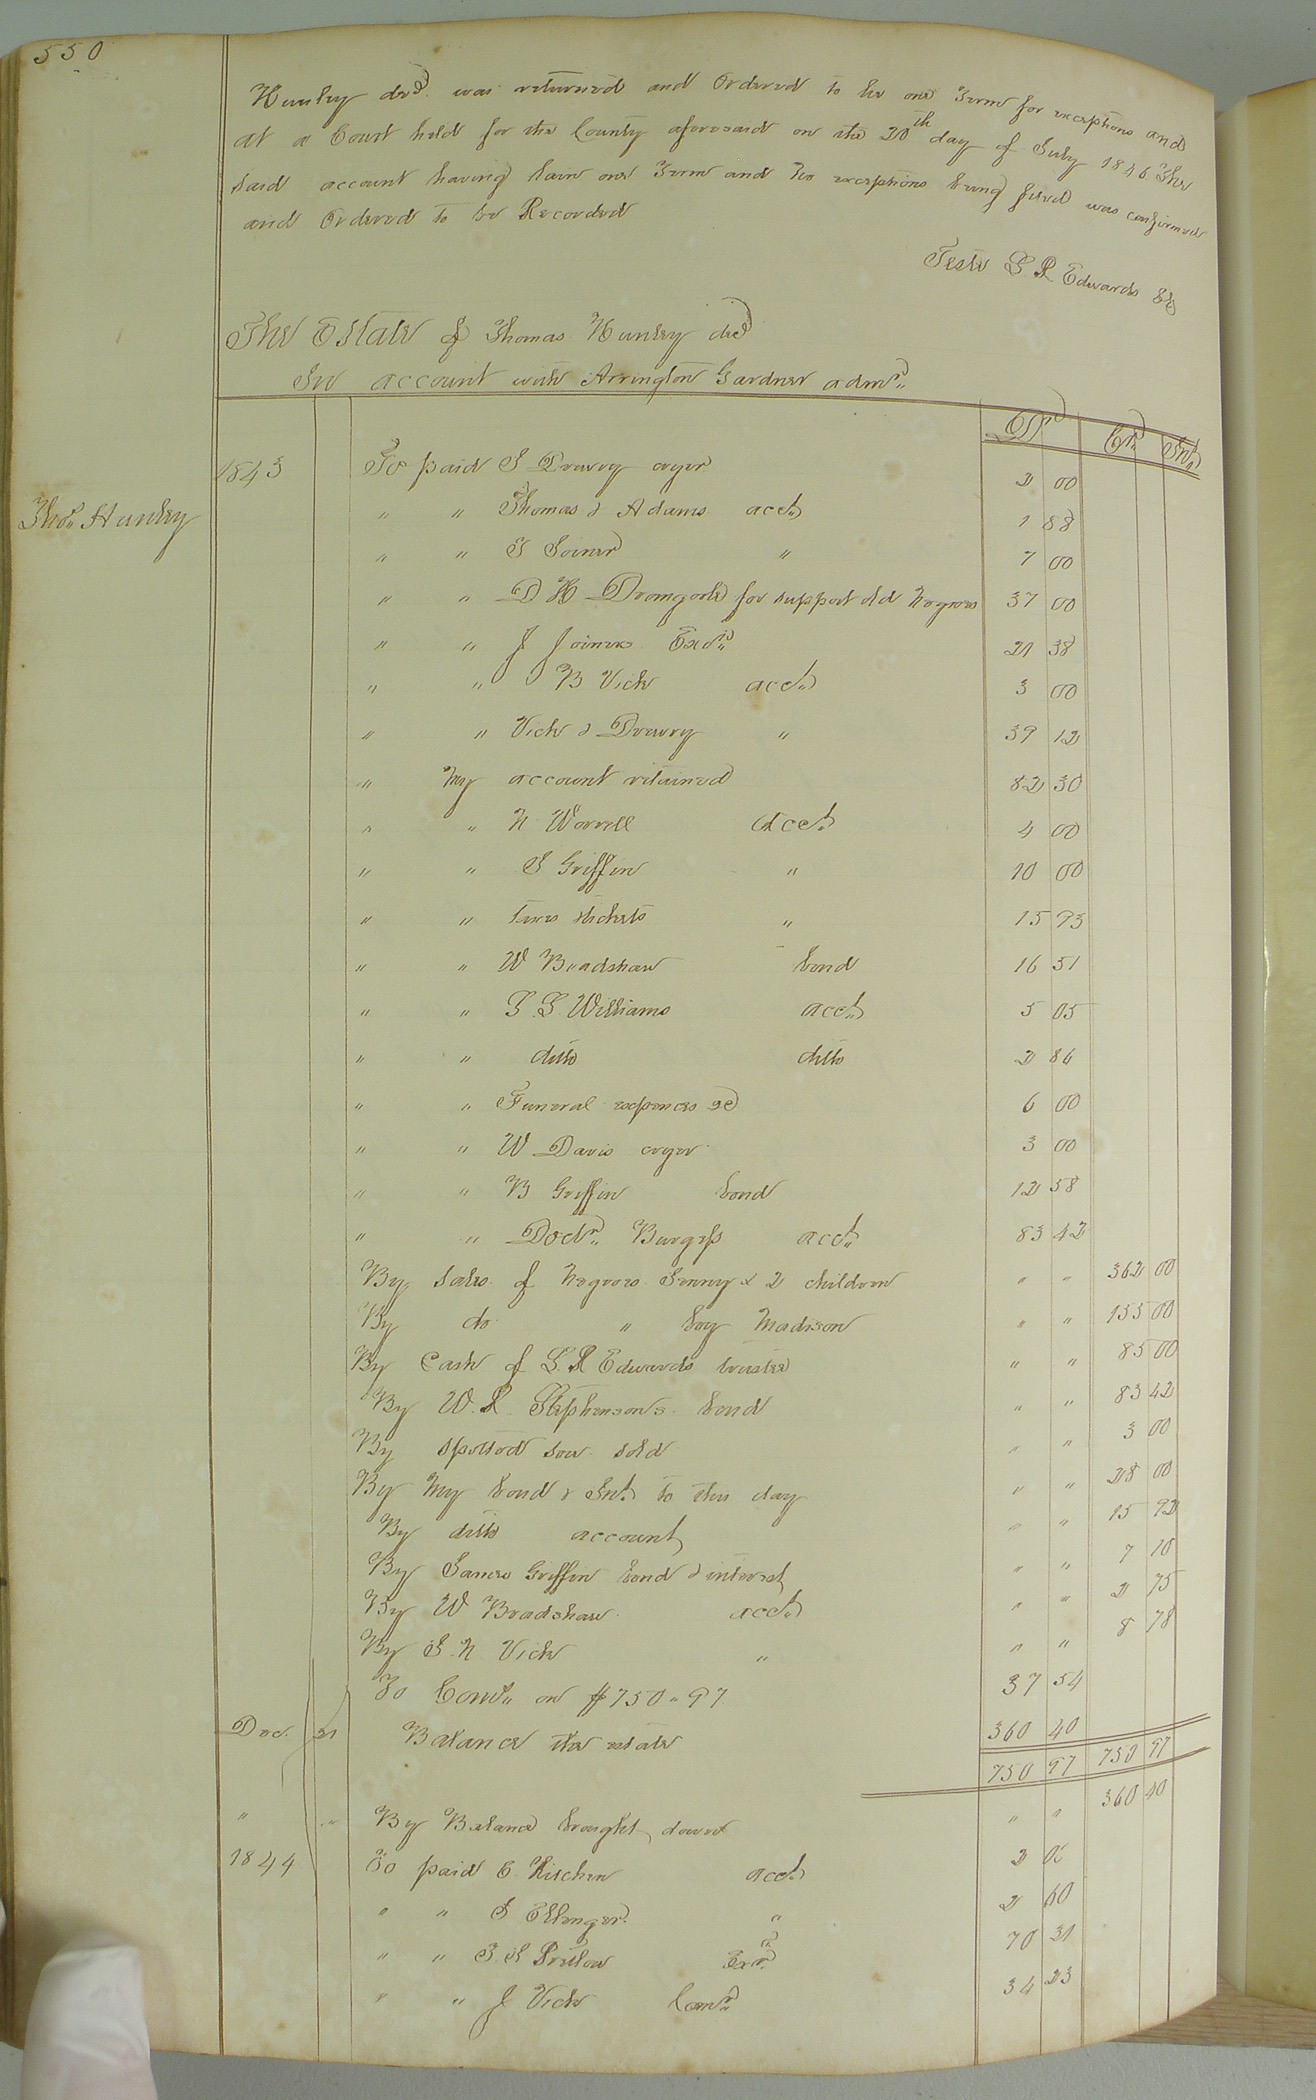 550
Hunley decd. was returned and Ordered to lie one Term for exceptions and
at a Court held for the County aforesaid on the 20th day of July 1846 The
said account having lain one Term and No exceptions being filed was confirmed
and Ordered to be Recorded
Teste L R Edwards Clk
The Estate of Thomas Hunley decd
In account with Arrington Gardner admr.
Dr Cr. Int.
1843 To paid S Drewry cryer 2 00
Thos. Hunley
" " Thomas & Adams acct. 1 88
" " J Joiner " 7 00
" " D H Dromgoole for support old Negroes 37 00
" " J Joiners Exor. 21 38
" " B Vick acct. 3 00
" " Vick & Drewry " 39 12
" My account retained 82 30
" " N Worrell acct. 4 00
" " S Griffin " 10 00
" " tickets " 15 93
" " W Bradshaw bond 16 51
" " Williams acct. 5 05
" " ditto ditto 2 86
" " Funeral expences &c 6 00
" " W Davis cryer 3 00
" " B Griffin bond 12 58
" " Doctr. Burgess acct. 83 42
By Sales of Negroes Jenny & 2 children " " 362 00
By do " boy Madison " " 155 00
By Cash of L. R Edwards trustee " " 85 00
By W. R. Stephenson's bond " " 83 42
By spotted sow sold " " 3 00
By My bond & Int. to this day " " 28 00
By ditto account " " 15 92
By James Griffin bond & interest " " 7 10
By W Bradshaw acct. " " 2 75
By S. N Vick " " " 8 78
To Comn. on $750.97 37 54
Dec. 31 Balance the estate 360 40
750 97 750 97
" " By Balance brought down " " 360 40
1844 To paid Kitchen acct. 2
" " S " 2 60
" " Pretlow Exr. 70 31
" " J Vick Comr. 34 23